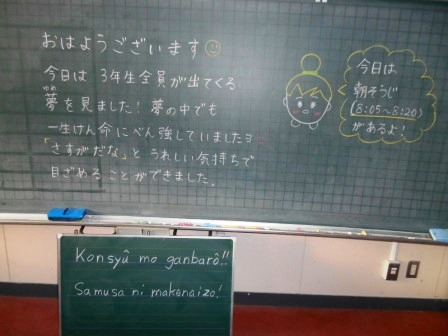 おはようございます
今日は 3年生全員が出てくる
ゆめ
夢を見ました! 夢の中でも
一生けん命にべん強していましたヨ
「さすがだな」と うれしい気持ちで
目ざめることができました。
今日は
朝そうじ
(8:05~8:20)
があるよ!
Konsyû mo ganbarô!!
Samusa ni makenaizo!